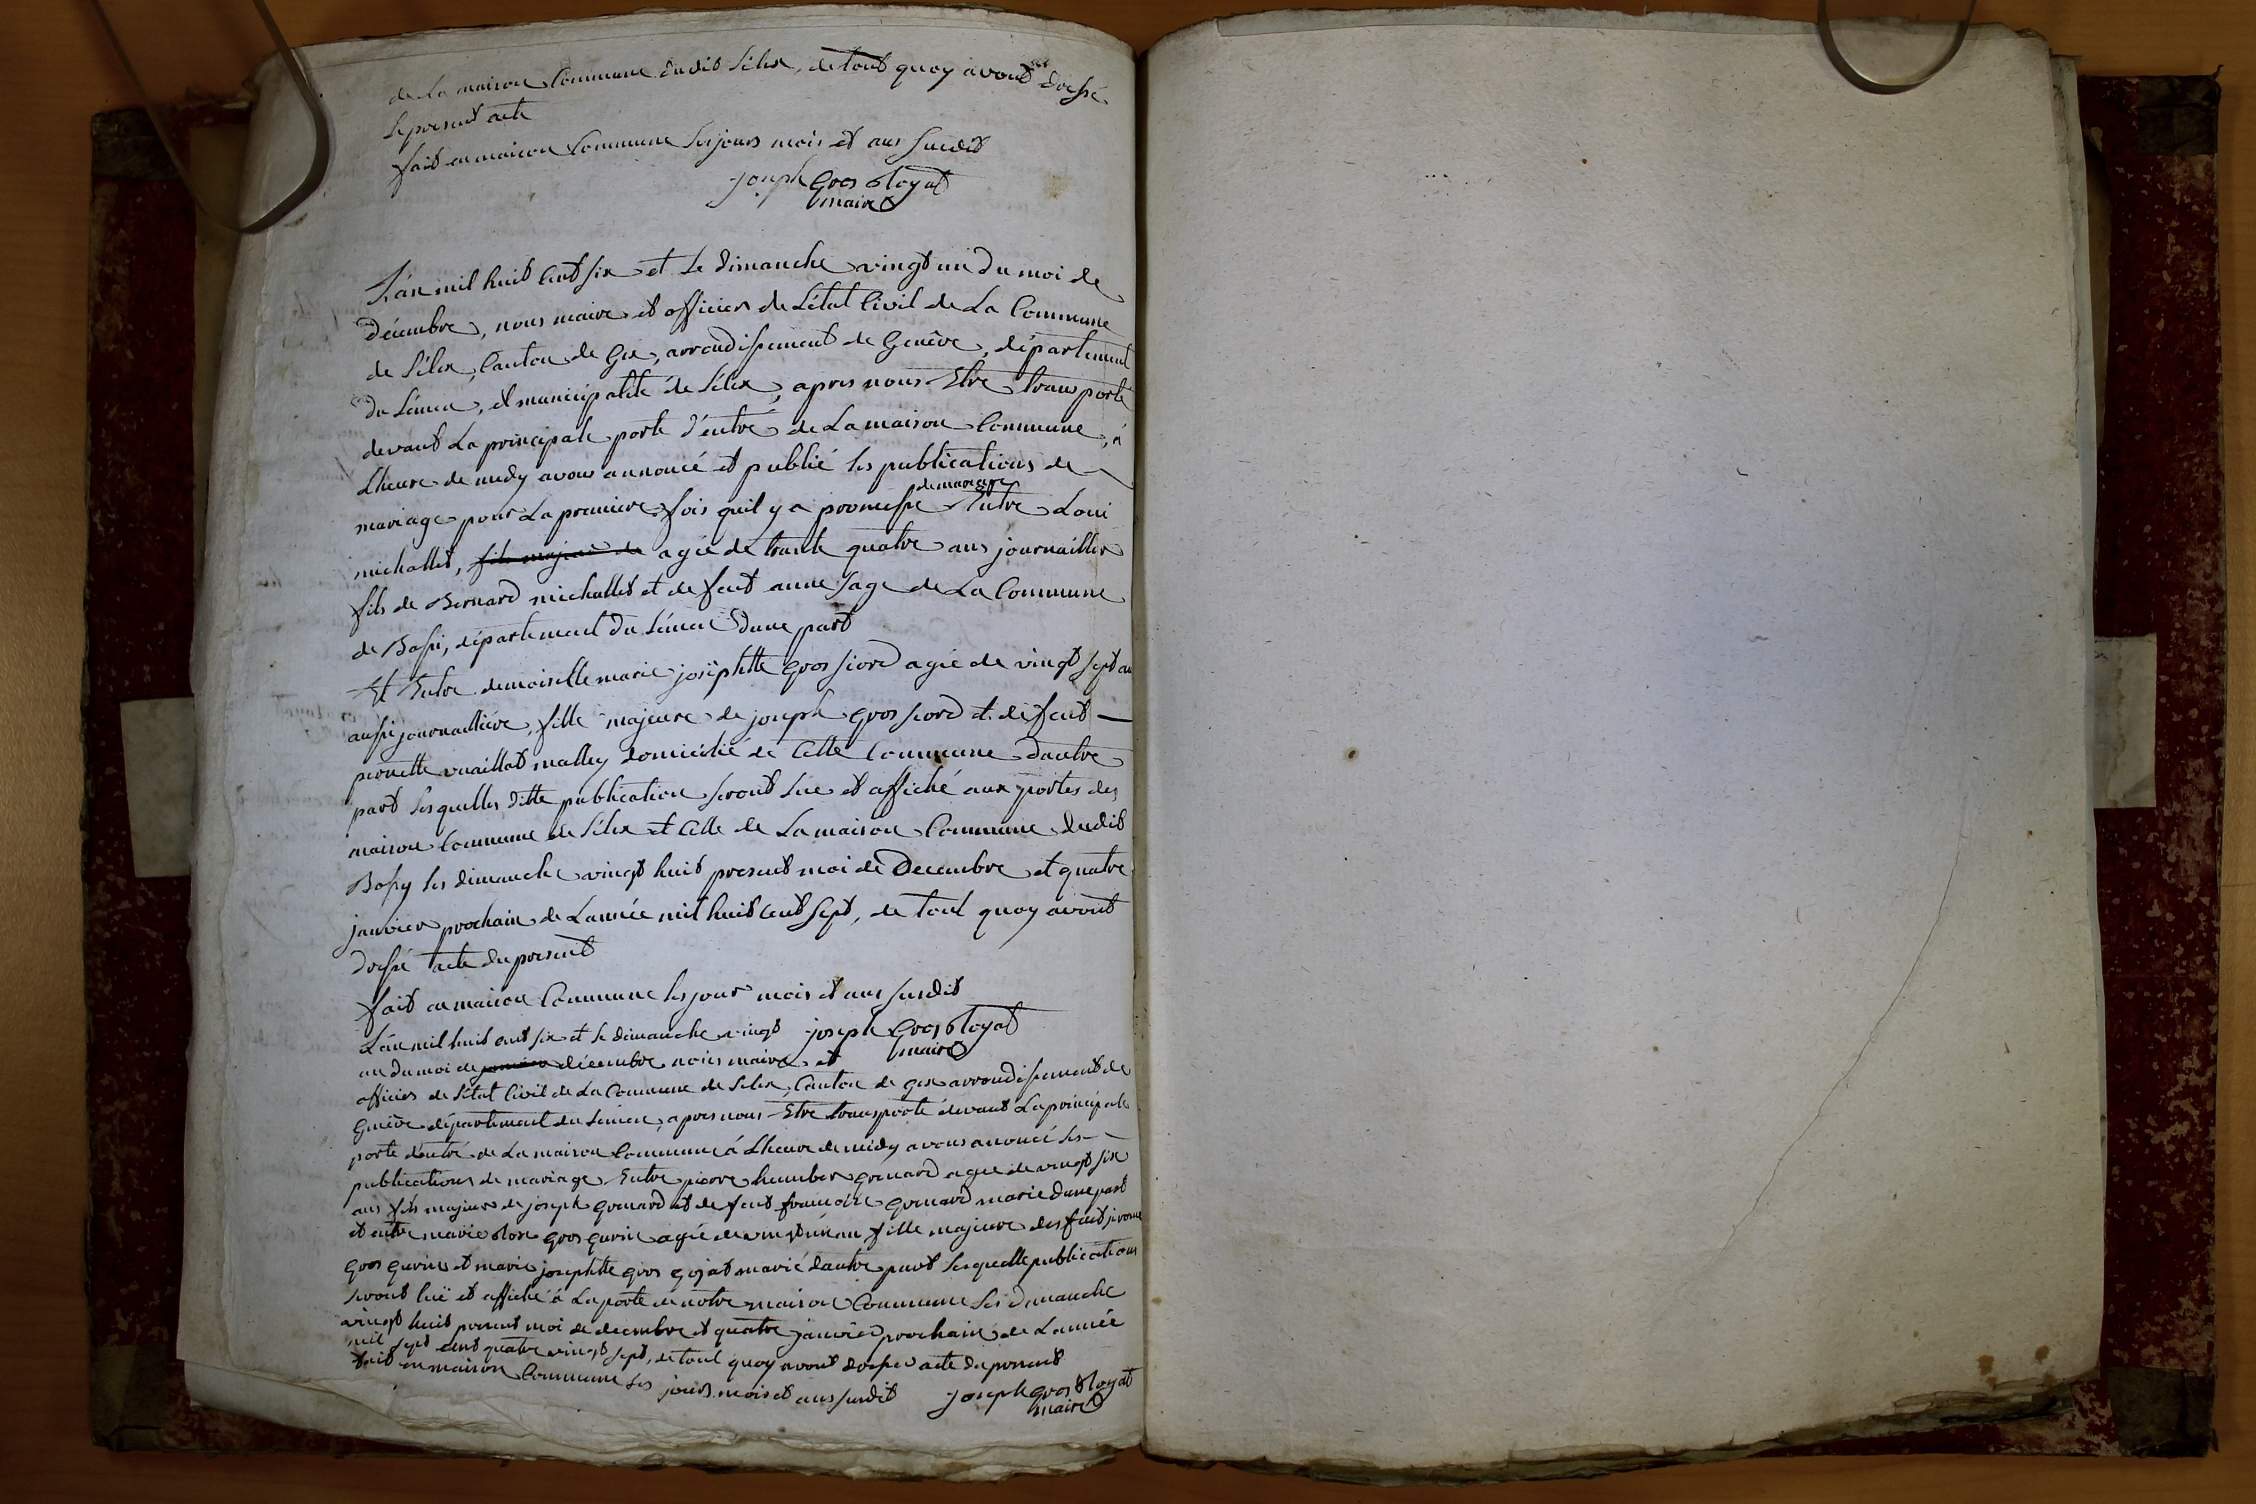 de La maison Commune dudit Lélex, de tout quoy avont dressé
le present acte
fait en maison Commune les jours mois et ans susdit
joseph Gros Royat
maire
L'an mil huit Cent six et le dimanche vingt un du moi de
décembre, nous maire et officier de L'état Civil de La Commune
de Lélex, Canton de Gex, arrondissement de Genève, département
du Léman, et municipalité de Lélex, apres nous Etre transporté
devant La principale porte d'entré de La maison Commune, á
Lheure de midy avons annoncé et publié les publications de
mariage pour La premiere fois quil y a promesse de mariage Entre Loui
michallet, fils majeur de agée de trante quatre ans journaillier
fils de Bernard michallet et de feut anne sage de La Commune
de Bossi, département du Léman Dune part
Et Entre demoiselle marie joséphtte gros fiord agée de vingt sept an
aussi journaillière, fille majeure de joseph gros fiord et de feut
pernette vuaillat malley domicilié de Cette Commune Dautre
part lesquelles ditte publication seront lue et affiché aux portes des
maison Commune de Lélex et Celle de La maison Commune dudit
Bossy les dimanche vingt huit present moi de Decembre et quatre
janvier prochain de Lannée mil huit Cent sept, de tout quoy avont
dressé acte du present
fait en maison Commune les jour mois et ans susdit
joseph Gros Royat
maire
L'an mil huit cent six et le dimanche vingt
un du moi de janvier décembre nous maire et
officier de L'état Civil de La Commune de Lelex, Canton de gex arrondissement de
Genève département du Leman, apres nous Etre transporté devant La principale
porte d'entré de La maison Commune á Lheure de midy avons anoncé les
publications de mariage Entre pierre humber grenard agée de vingt six
ans fils majeur de joseph grenard et de feut francoise grenard marie dune part
et entre marie Rose gros gurin agée de vingt un an fille majeure des feut
gros gurin et marie josephtte gros gojat marié dautre part lesquelle publications
seront lué et affiché á La porte de notre maison Commune les dimanche
vingt huit present moi de decembre et quatre janvier prochain de Lannée
mil sept cent quatre vingt sept, de tout quoy avont dressé acte du present
fait en maison Commune les jours mois et ans susdit
joseph gros Royat
maire